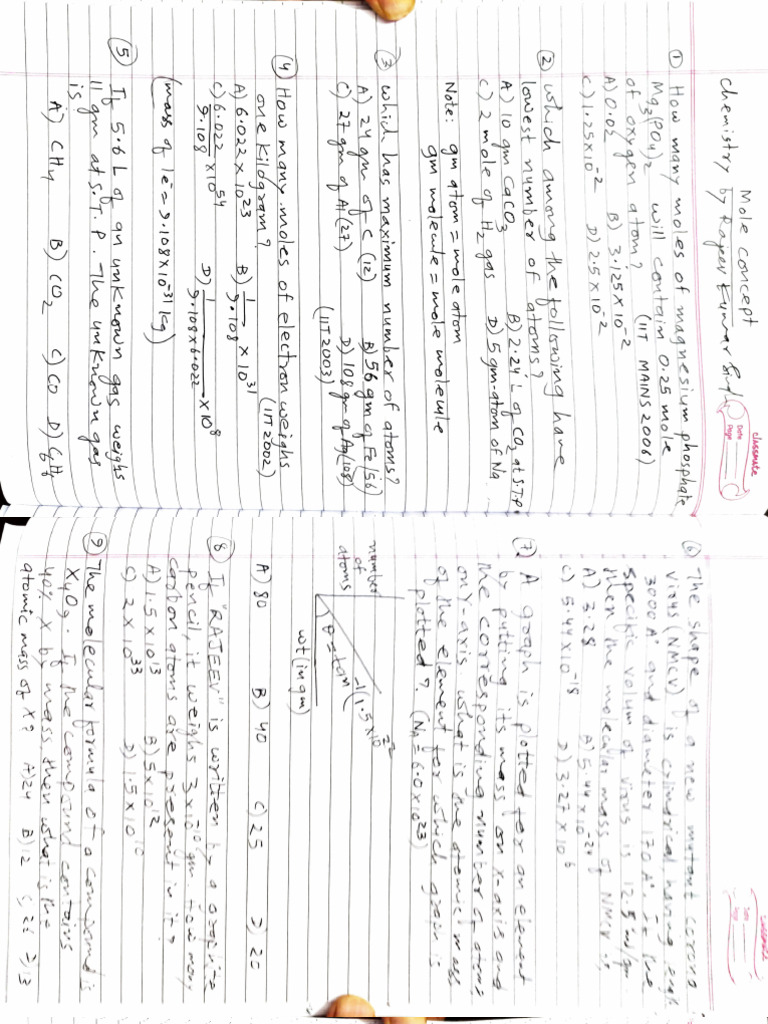 Mole concept
Chemistry by Rajeev Kumar Singh
classmate
Date
Page
① How many moles of magnesium phosphate
Mg3(PO4)2 will contain 0.25 mole
of oxygen atom? (IIT MAINS 2006)
A) 0.02 B) 3.125×10^-2
C) 1.25×10^-2 D) 2.5×10^-2
② which among the following have
lowest number of atoms?
A) 10 gm CaCO3 B) 2.24 L of CO2 at S.T.P.
C) 2 mole of H2 gas D) 5 gm-atom of Na
Note: gm atom = mole atom
gm molecule = mole molecule
③ which has maximum number of atoms?
A) 24 gm of C (12) B) 56 gm of Fe (56)
C) 27 gm of Al (27) D) 108 gm of Ag (108)
(IIT 2003)
④ How many moles of electron weighs
one Kilogram? (IIT 2002)
A) 6.022 × 10^23 B) 1/9.108 × 10^31
C) 6.022/9.108 × 10^54 D) 1/9.108×6.022 × 10^8
(mass of 1e- = 9.108×10^-31 kg)
⑤ If 5.6 L of an unknown gas weighs
11 gm at S.T.P. The unknown gas
is
A) CH4 B) CO2 C) CO D) C6H6
classmate
Date
Page
⑥ The shape of a new mutant corona
virus (NMCV) is cylindrical having
3000 A° and diameter 170 A°. If the
specific volum of virus is 12.5 ml/gm
then the molecular mass of NMCV is
A) 3.28 A) 5.44×10^-24
C) 5.44×10^-18 D) 3.27×10^6
⑦ A graph is plotted for an element
by putting its mass on x-axis and
the corresponding number of atoms
on Y-axis what is the atomic mass
of the element for which graph is
plotted? (NA = 6.0×10^23)
number
of
atoms
θ = tan^-1(1.5×10^22)
wt (in gm)
A) 80 B) 40 C) 25 D) 20
⑧ If "RAJEEV" is written by a graphite
pencil, it weighs 3×10^-10 gm. How many
carbon atoms are present in it?
A) 1.5×10^13 B) 5×10^12
C) 2×10^33 D) 1.5×10^10
⑨ The molecular formula of a compound is
X4O9. If the compound contains
40% X by mass, then what is the
atomic mass of X? A) 24 B) 12 C) 26 D) 13